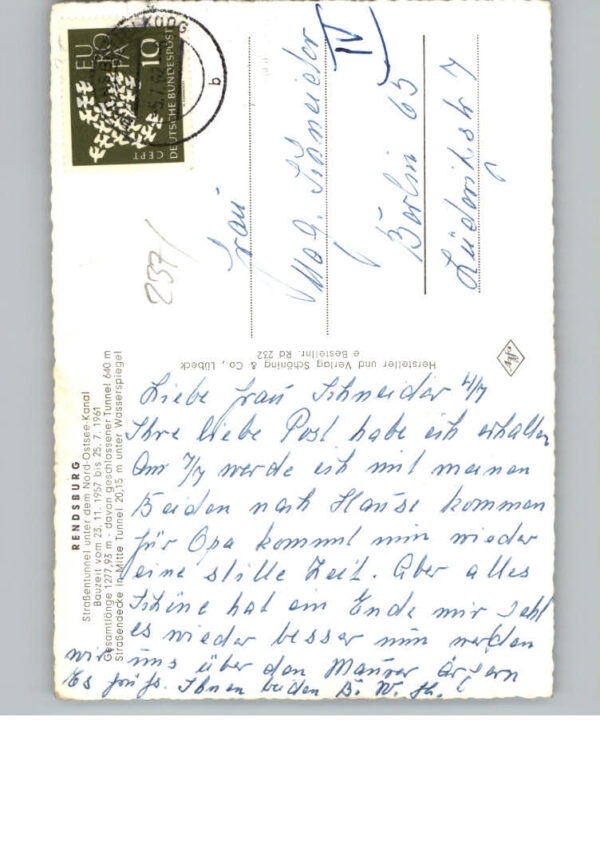 EUROPA
10
DEUTSCHE BUNDESPOST
CEPT
KOOG
b
237/
Frau
Mag. Schneider
IV
Berlin 65
Lüderitzstr 7
Hersteller und Verlag Schöning & Co., Lübeck
e Bestellnr. Rd 232
RENDSBURG
Straßentunnel unter dem Nord-Ostsee-Kanal
Bauzeit vom 23. 11. 1957 bis 25. 7. 1961
Gesamtlänge 1277,93 m - davon geschlossener Tunnel 640 m
Straßendecke in Mitte Tunnel 20,15 m unter Wasserspiegel
Liebe Frau Schneider 4/7
Ihre liebe Post habe ich erhalten
Am 7/7 werde ich mit meinen
Beiden nach Hause kommen
für Opa kommt nun wieder
eine stille Zeit. Aber alles
Schöne hat ein Ende mir geht
es wieder besser nun werden
wir uns über den Maurer ärgern
Es grüßt Ihnen beiden B. W.